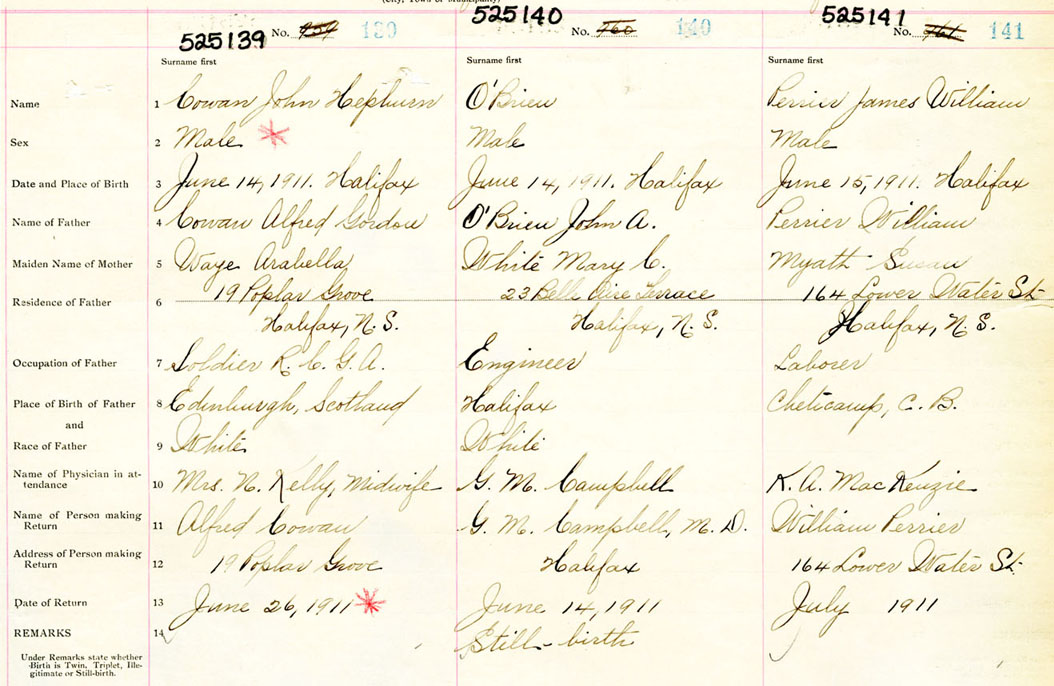 (City, Town or Municipality)
525139 No. 959 139 525140 No. 960 140 525141 No. 961 141
Surname first Surname first Surname first
Name 1 Cowan John Hepburn O'Brien Perrier James William
Sex 2 Male Male Male
Date and Place of Birth 3 June 14, 1911. Halifax June 14, 1911. Halifax June 15, 1911. Halifax
Name of Father 4 Cowan Alfred Gordon O'Brien John A. Perrier William
Maiden Name of Mother 5 Waye Arabella White Mary C. Myatt Susan
Residence of Father 6 19 Poplar Grove 23 Belle Aire Terrace 164 Lower Water St.
Halifax, N.S. Halifax, N.S. Halifax, N.S.
Occupation of Father 7 Soldier R.C.G.A. Engineer Laborer
Place of Birth of Father 8 Edinburgh, Scotland Halifax Cheticamp, C.B.
and
Race of Father 9 White White
Name of Physician in at-
tendance 10 Mrs. N. Kelly, Midwife G. M. Campbell K. A. MacKenzie
Name of Person making
Return 11 Alfred Cowan G. M. Campbell, M.D. William Perrier
Address of Person making
Return 12 19 Poplar Grove Halifax 164 Lower Water St.
Date of Return 13 June 26, 1911 June 14, 1911 July 1911
REMARKS 14 Still-birth
Under Remarks state whether
Birth is Twin, Triplet, Ille-
gitimate or Still-birth.